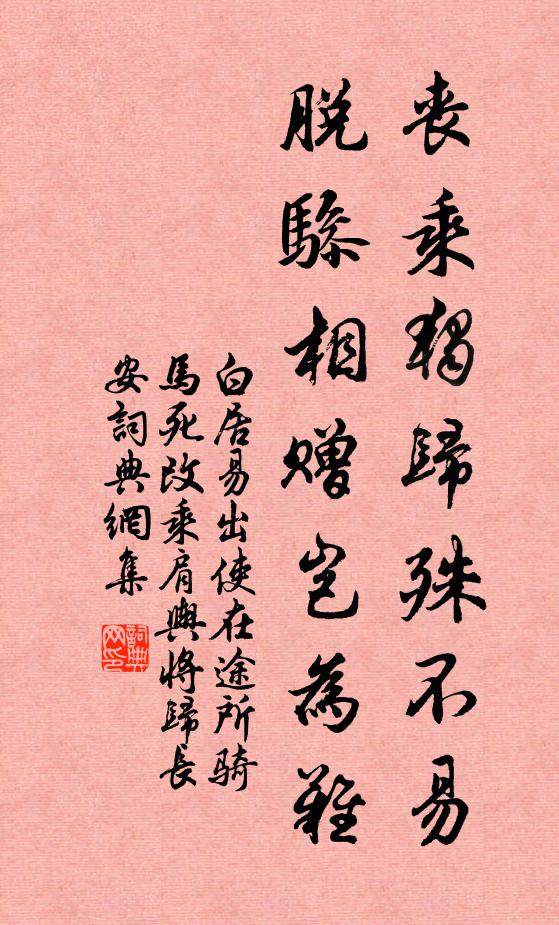 喪乘獨歸殊不易
脫驂相贈豈為難
白居易出使在途所騎
馬死改乘肩輿將歸長
安詞典網集
詞典
网印